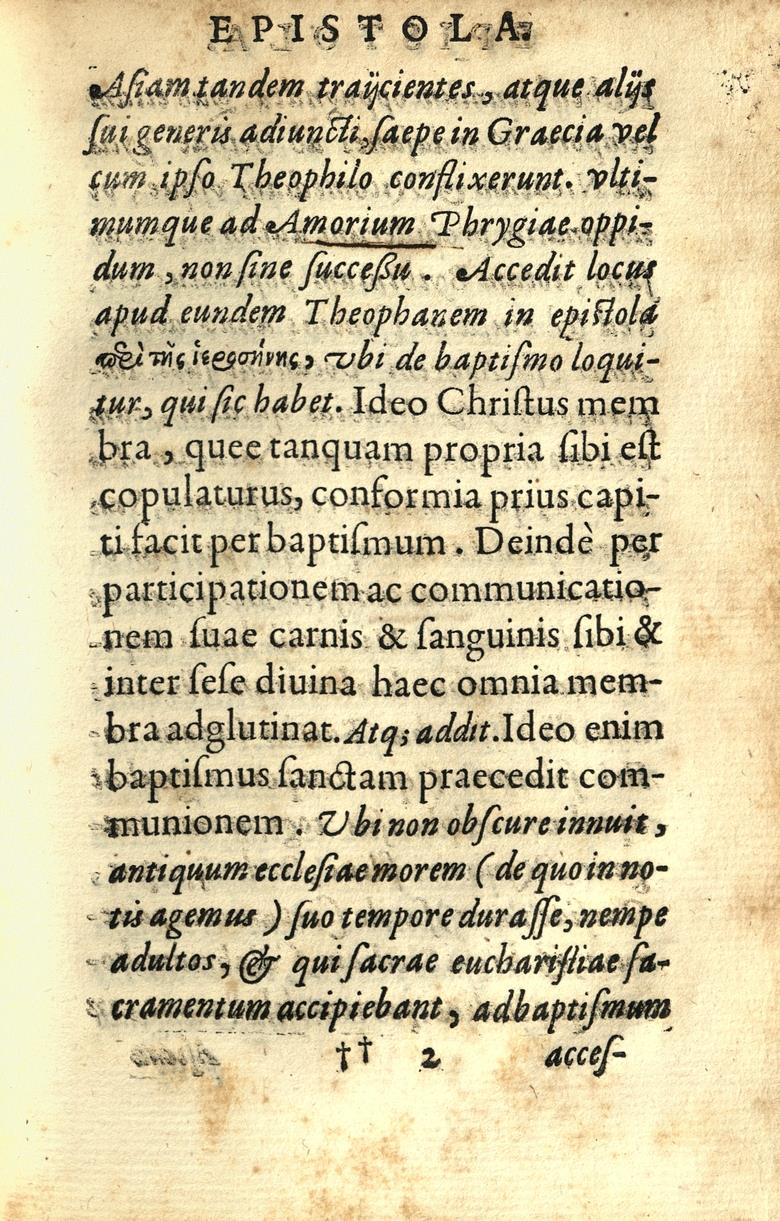 EPISTOLA.
Aſiam tandem traijcientes, atque alijs
ſui generis adiuncti, ſaepe in Graecia vel
cum ipſo Theophilo conflixerunt. vlti-
mumque ad Amorium Phrygiae oppi-
dum, non ſine ſucceßu. Accedit locus
apud eundem Theophanem in epiſtola
περὶ τῆς ἱερωσύνης, vbi de baptiſmo loqui-
tur, qui ſic habet. Ideo Chriſtus mem
bra, quee tanquam propria ſibi eſt
copulaturus, conformia prius capi-
ti facit per baptiſmum. Deindè per
participationem ac communicatio-
nem ſuae carnis & ſanguinis ſibi &
inter ſeſe diuina haec omnia mem-
bra adglutinat. Atq; addit. Ideo enim
baptiſmus ſanctam praecedit com-
munionem. Vbi non obſcure innuit,
antiquum eccleſiae morem (de quo in no-
tis agemus) ſuo tempore duraſſe, nempe
adultos, & qui ſacrae euchariſtiae ſa-
cramentum accipiebant, ad baptiſmum
†† 2 acceſ-